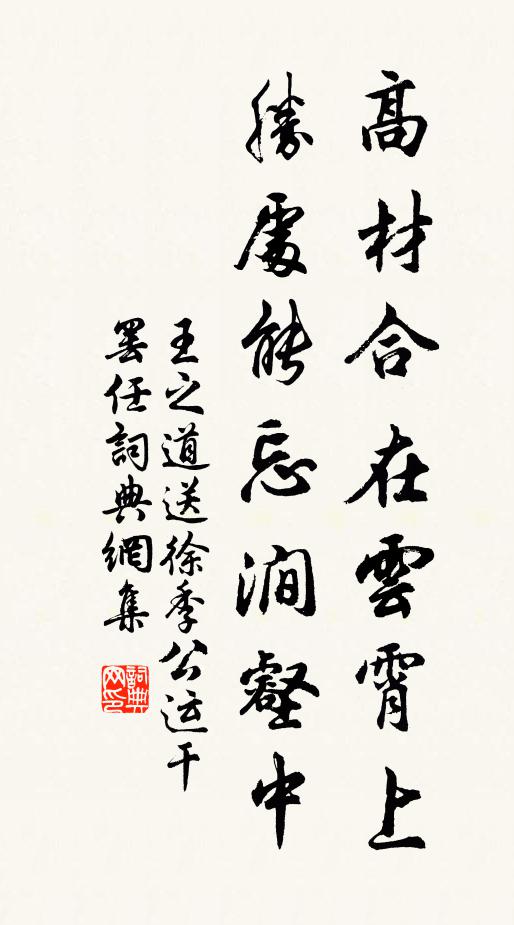 高材合在雲霄上
勝處能忘澗壑中
王之道送徐季公运干
罢任詞典網集
詞典网印